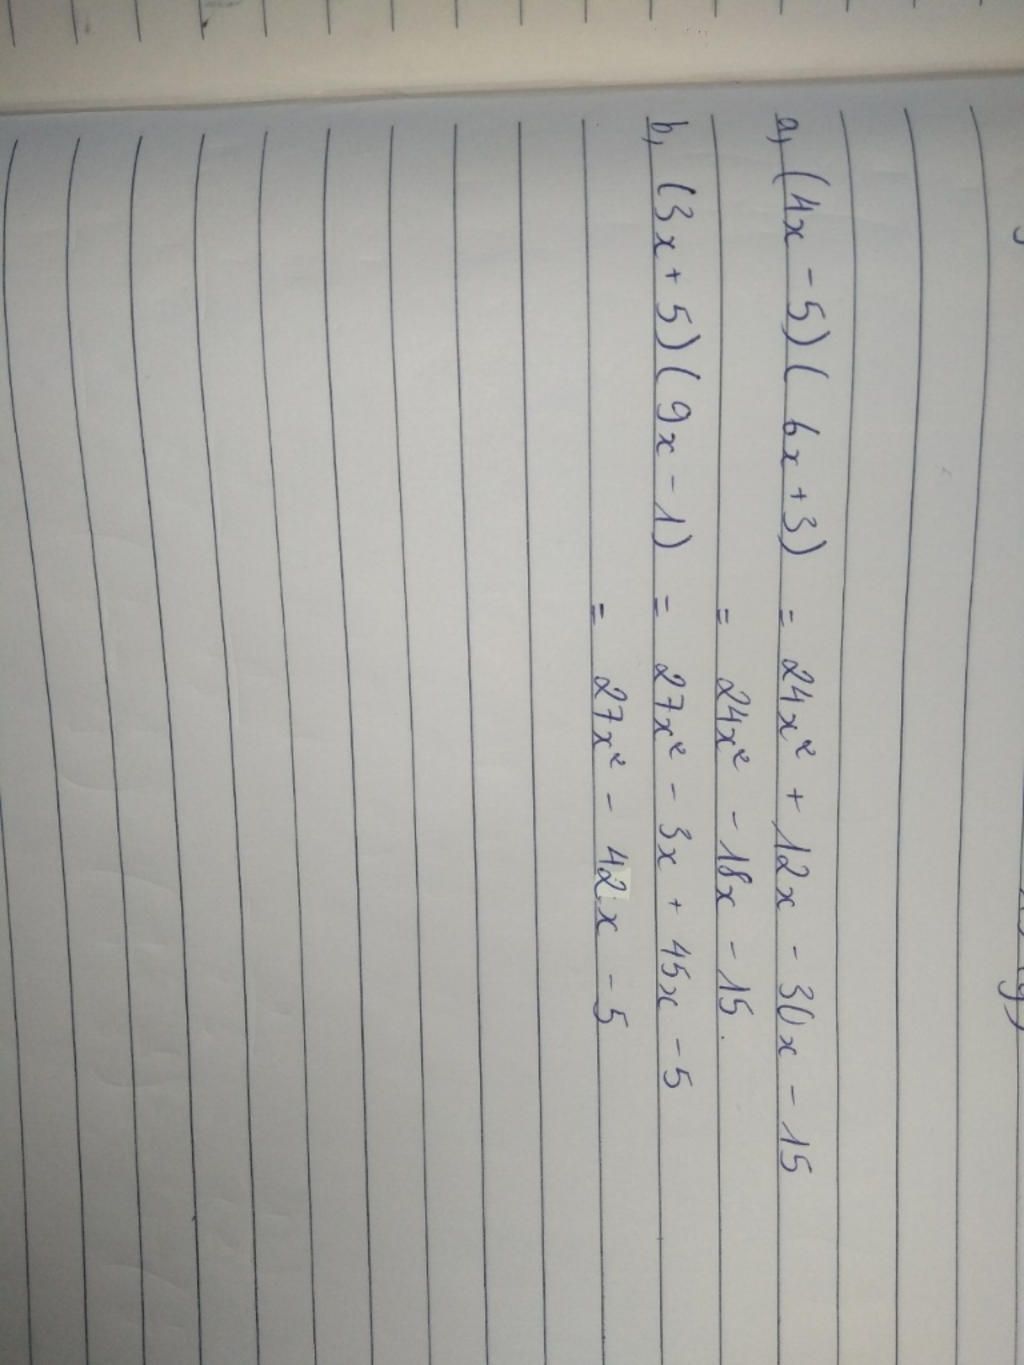 a, (4x - 5)( 6x + 3) = 24x² + 12x - 30x - 15
= 24x² - 18x - 15.
b, (3x + 5)(9x - 1) = 27x² - 3x + 45x - 5
= 27x² - 42x - 5